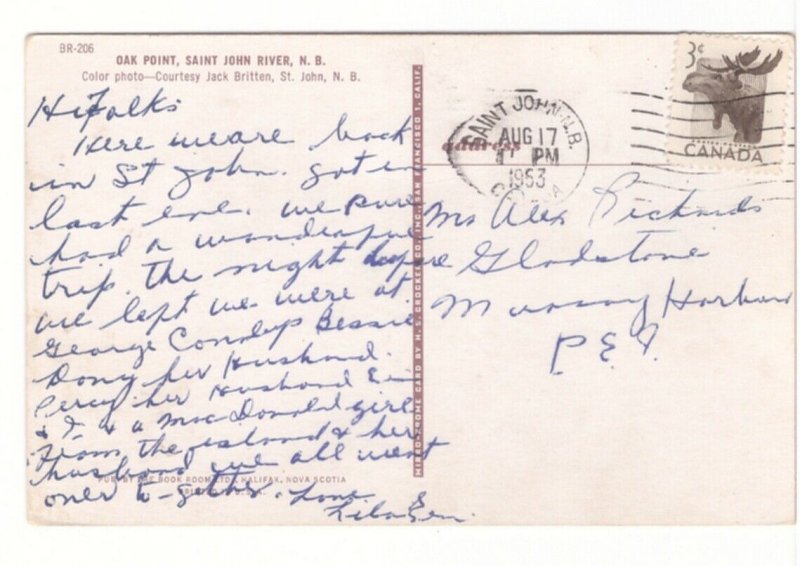 BR-206
OAK POINT, SAINT JOHN RIVER, N. B.
Color photo—Courtesy Jack Britten, St. John, N. B.
Hi Folks
Here we are back
in St John. Got in
last eve. We sure
had a wonderful
trip. the night before
we left we were at
George Bessie
her Husband.
Percy her Husband
& I & a Mac Donald girl
From the island & her
husband we all went
over to-gether. Love
&
PUB. BY THE BOOK ROOM LTD. HALIFAX, NOVA SCOTIA
MIRRO-KROME CARD BY H. S. CROCKER CO., INC., SAN FRANCISCO 1, CALIF.
address
SAINT JOHN N.B.
AUG 17
PM
1953
3¢
CANADA
Mr Alex Richards
Gladstone
Murray Harbour
P.E.I.